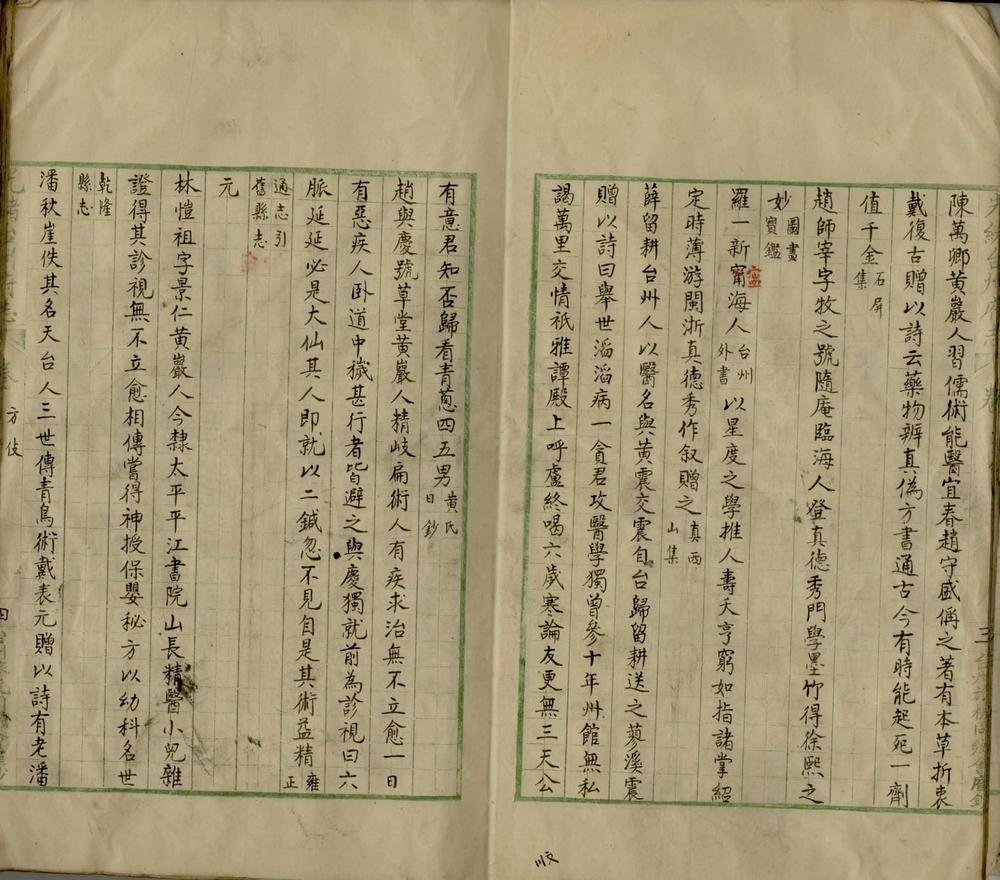 陳萬卿黃巖人習儒術能醫宜春趙守盛稱之著有本草折衷
戴復古贈以詩云藥物辨真偽方書通古今有時能起死一劑
值千金石屏集
趙師宰字牧之號隨庵臨海人登真德秀門學墨竹得徐熙之
妙圖畫寶鑑
羅一新甯海人台州外書以星度之學推人壽夭亨窮如指諸掌紹
定時薄游閩浙真德秀作叙贈之真西山集
薛留耕台州人以醫名與黃震交震自台歸留耕送之蓼溪震
贈以詩曰舉世滔滔病一貪君攻醫學獨曾參十年州館無私
謁萬里交情祇雅譚殿上呼盧終喝六歲寒論友更無三天公
有意君知否歸看青蔥四五男黃氏日鈔
趙與慶號草堂黃巖人精岐扁術人有疾求治無不立愈一日
有惡疾人臥道中穢甚行者皆避之與慶獨就前為診視曰六
脈延延必是大仙其人即就以二鍼忽不見自是其術益精雍正
通志引舊縣志
元
林愷祖字景仁黃巖人今隸太平平江書院山長精醫小兒雜
證得其診視無不立愈相傳嘗得神授保嬰秘方以幼科名世
乾隆縣志
潘秋崖佚其名天台人三世傳青烏術戴表元贈以詩有老潘
方伎